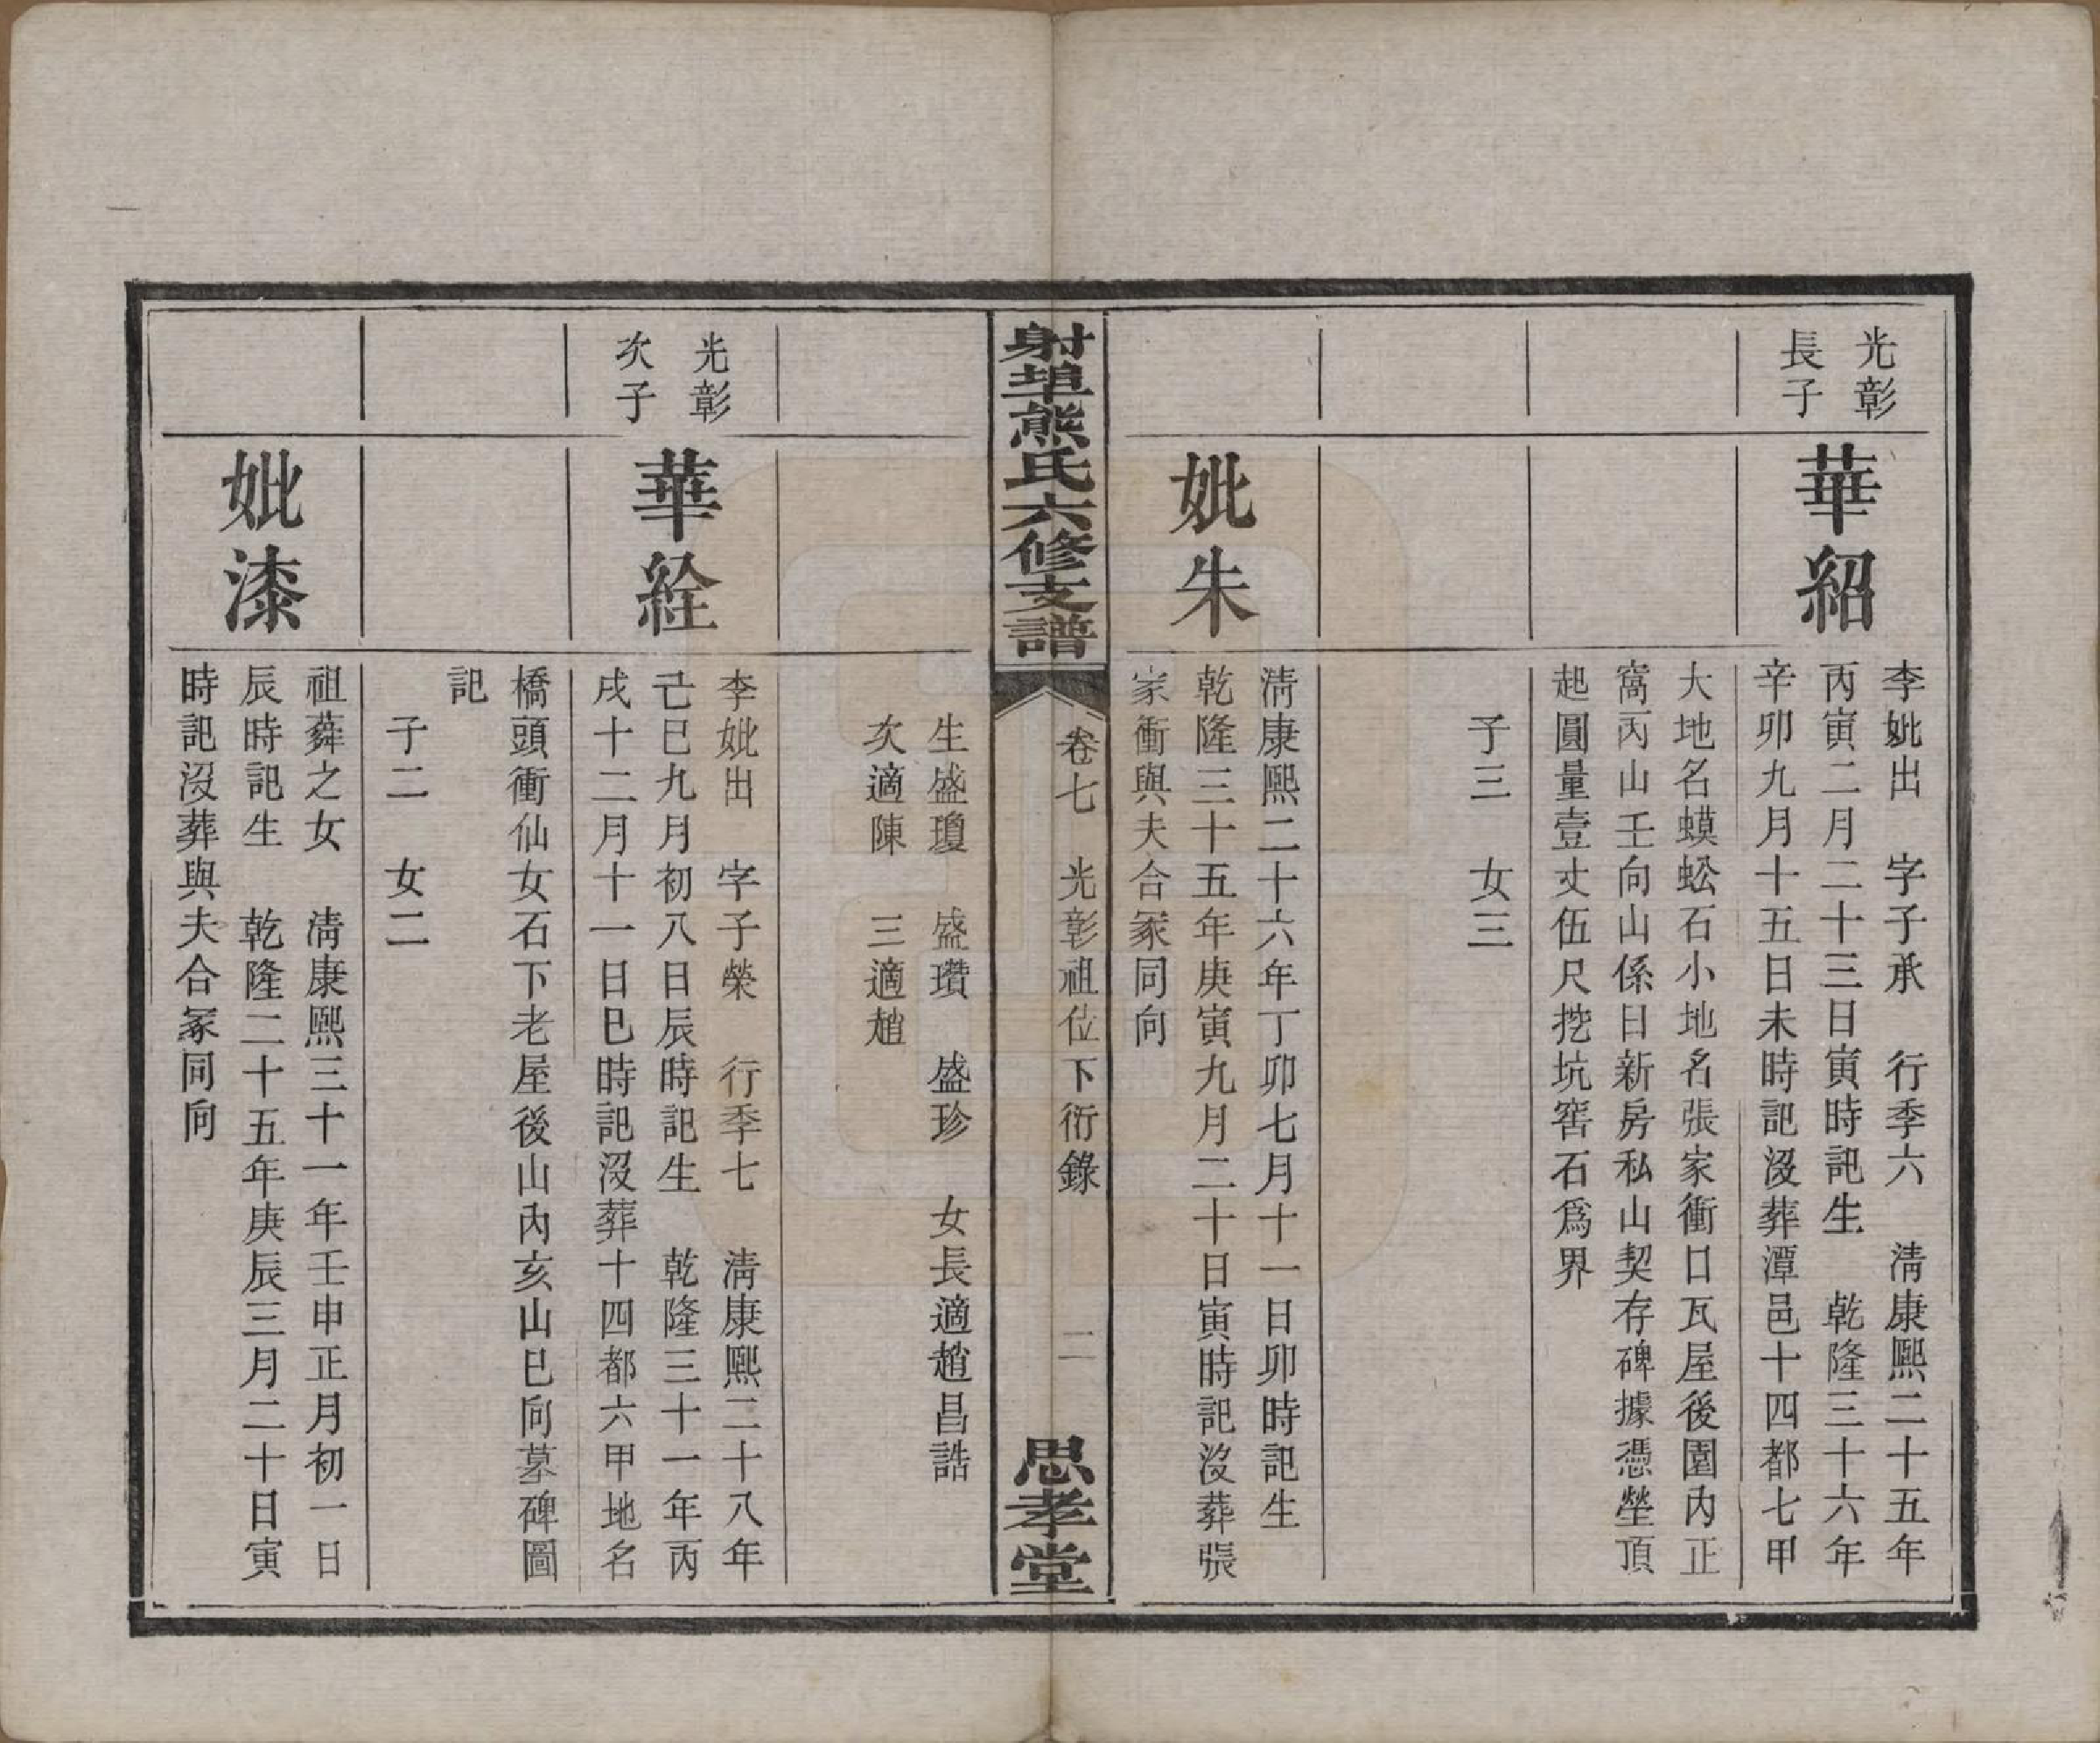 光彰
長子
華紹
李妣出　字子承　行季六　清康熙二十五年
丙寅二月二十三日寅時記生　乾隆三十六年
辛卯九月十五日未時記沒葬潭邑十四都七甲
大地名蟆蚣石小地名張家衝口瓦屋後園內正
窩丙山壬向山係日新房私山契存碑據憑塋頂
起圓量壹丈伍尺挖坑窖石爲界
子三　女三
妣朱
清康熙二十六年丁卯七月十一日卯時記生
乾隆三十五年庚寅九月二十日寅時記沒葬張
家衝與夫合冢同向
射埠熊氏六修支譜
卷七　光彰祖位下衍錄　二
思孝堂
生盛瓊　盛瓚　盛珍　女長適趙昌誥
次適陳　三適趙
光彰
次子
華絟
李妣出　字子榮　行季七　清康熙二十八年
己巳九月初八日辰時記生　乾隆三十一年丙
戌十二月十一日巳時記沒葬十四都六甲地名
橋頭衝仙女石下老屋後山內亥山巳向墓碑圖
記
子二　女二
妣漆
祖蕣之女　清康熙三十一年壬申正月初一日
辰時記生　乾隆二十五年庚辰三月二十日寅
時記沒葬與夫合冢同向